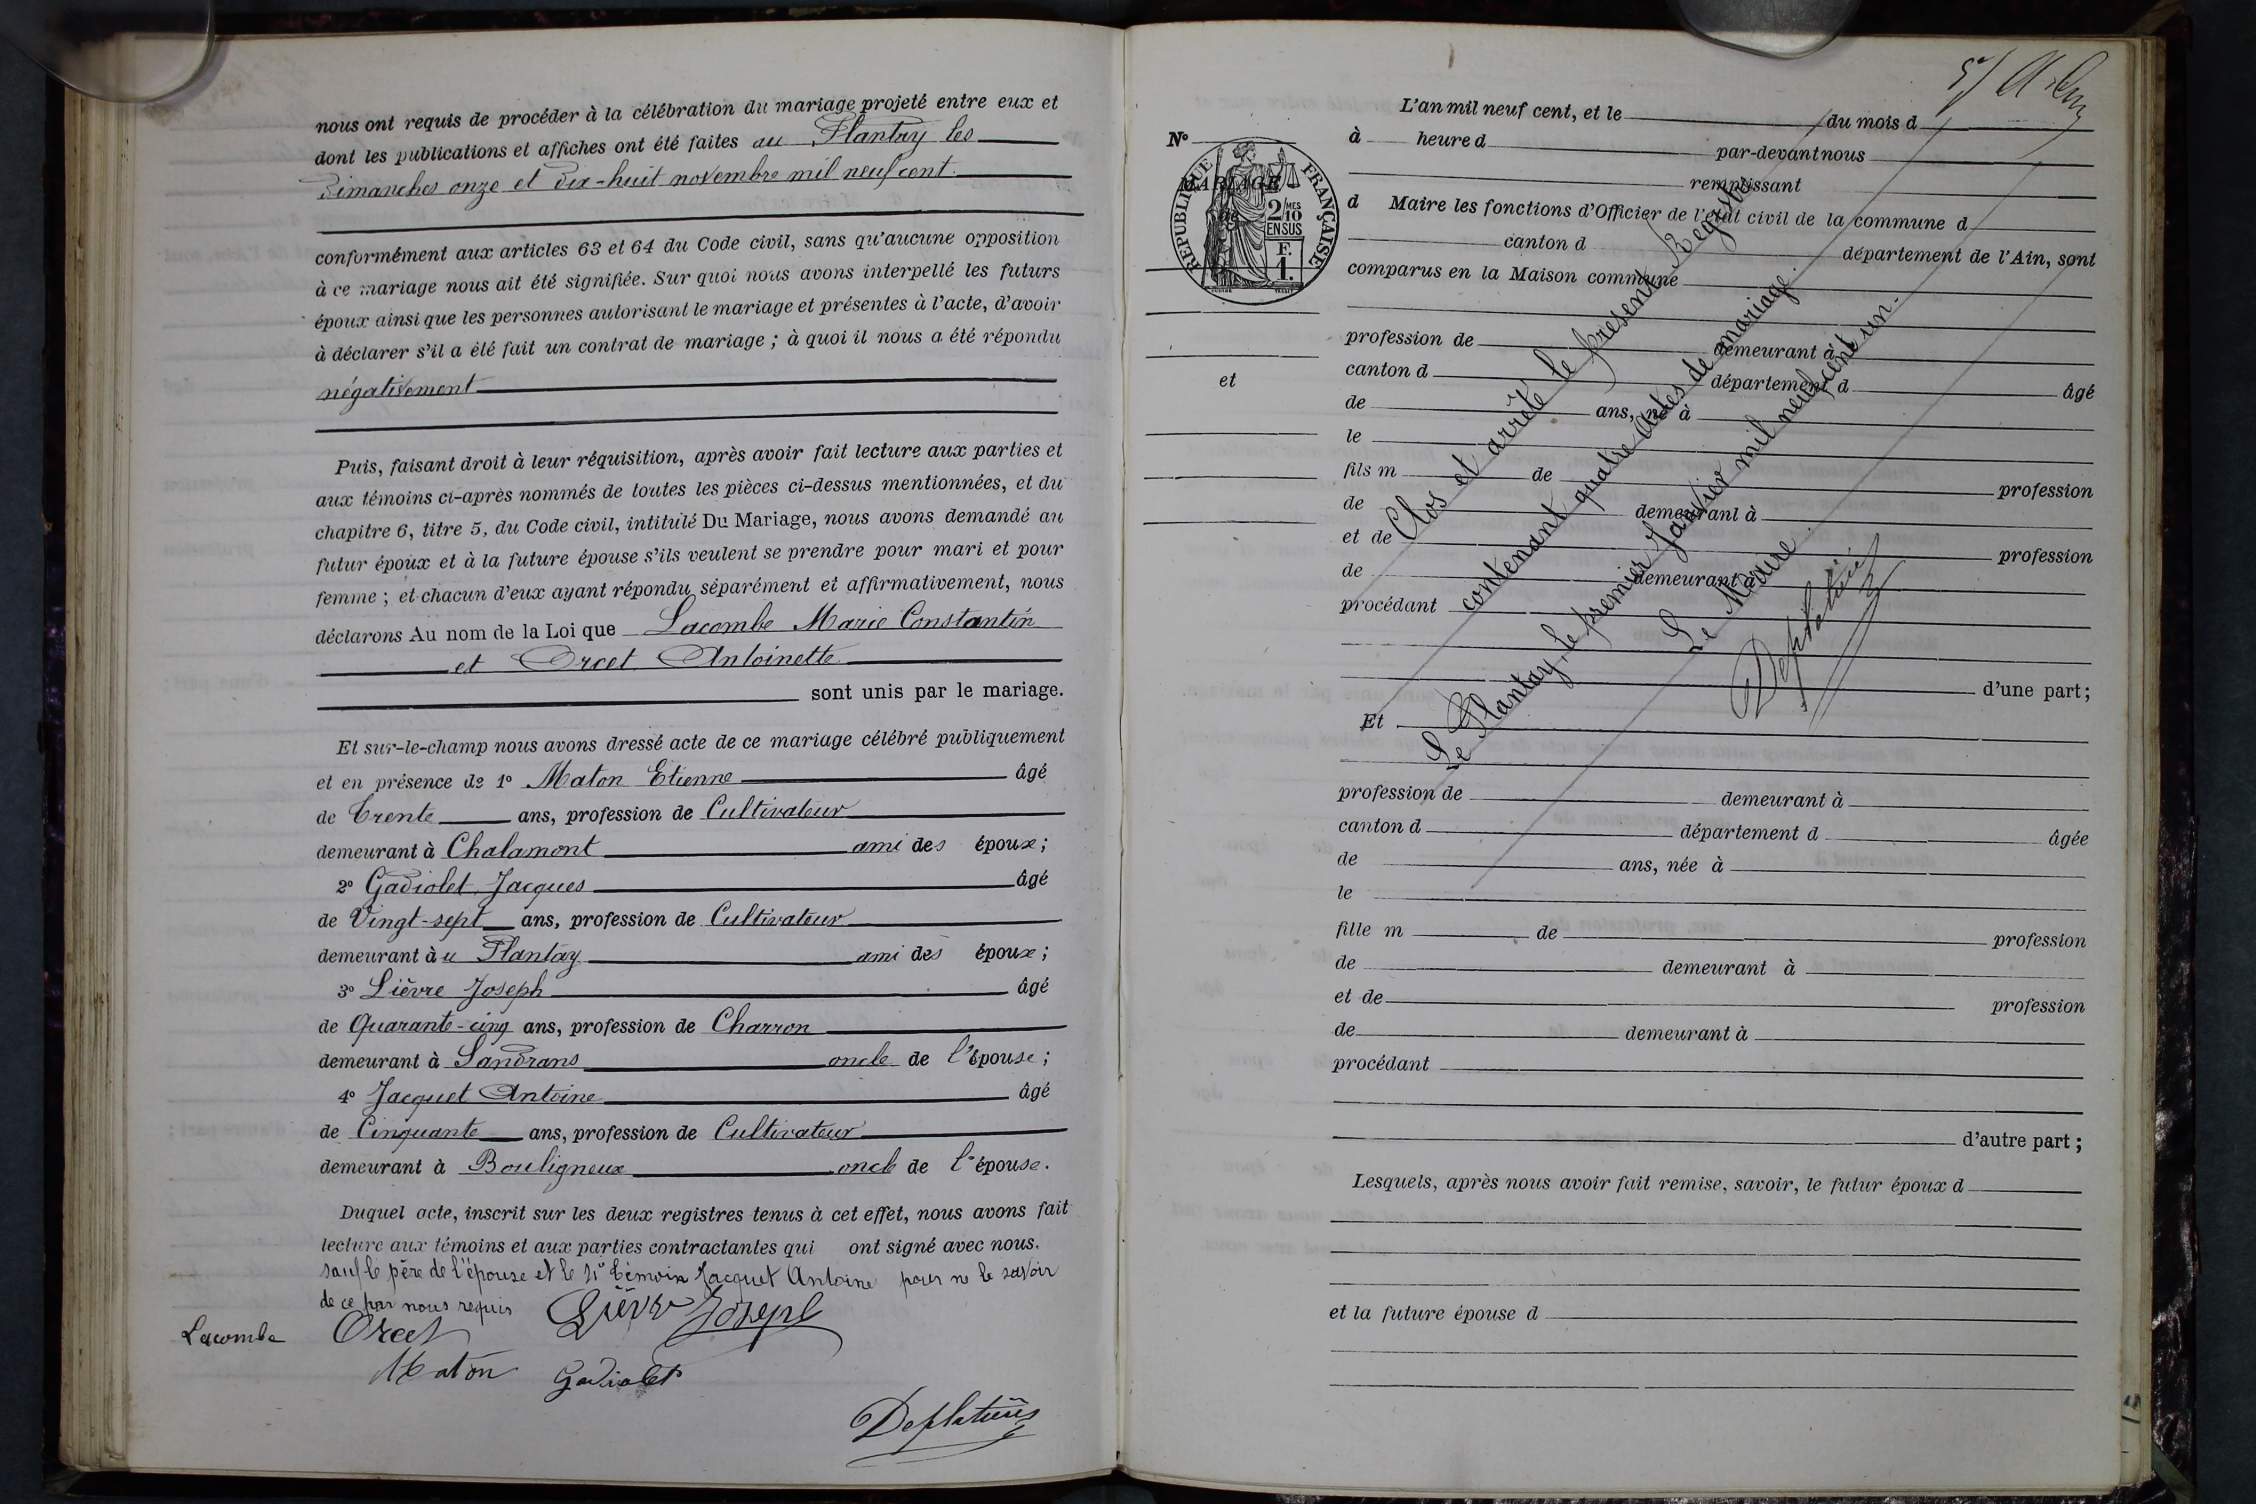 nous ont requis de procéder à la célébration du mariage projeté entre eux et
dont les publications et affiches ont été faites au Plantay les
Dimanches onze et Dix-huit novembre mil neuf cent.
conformément aux articles 63 et 64 du Code civil, sans qu'aucune opposition
à ce mariage nous ait été signifiée. Sur quoi nous avons interpellé les futurs
époux ainsi que les personnes autorisant le mariage et présentes à l'acte, d'avoir
à déclarer s'il a été fait un contrat de mariage ; à quoi il nous a été répondu
négativement
Puis, faisant droit à leur réquisition, après avoir fait lecture aux parties et
aux témoins ci-après nommés de toutes les pièces ci-dessus mentionnées, et du
chapitre 6, titre 5, du Code civil, intitulé Du Mariage, nous avons demandé au
futur époux et à la future épouse s'ils veulent se prendre pour mari et pour
femme ; et chacun d'eux ayant répondu séparément et affirmativement, nous
déclarons Au nom de la Loi que Lacombe Marie Constantin
et Orcet Antoinette
sont unis par le mariage.
Et sur-le-champ nous avons dressé acte de ce mariage célébré publiquement
et en présence de 1º Maton Etienne âgé
de Trente ans, profession de Cultivateur
demeurant à Chalamont ami des époux ;
2º Gadiolet Jacques âgé
de Vingt-sept ans, profession de Cultivateur
demeurant àu Plantay ami des époux ;
3º Lièvre Joseph âgé
de Quarante-cinq ans, profession de Charron
demeurant à Sandrans oncle de l'épouse ;
4º Jacquet Antoine âgé
de Cinquante ans, profession de Cultivateur
demeurant à Bouligneux oncle de l'épouse.
Duquel acte, inscrit sur les deux registres tenus à cet effet, nous avons fait
lecture aux témoins et aux parties contractantes qui ont signé avec nous.
sauf le père de l'épouse et le témoin Jacquet Antoine pour ne le savoir
de ce par nous requis Lièvre Joseph
Lacombe Orcet
Maton Gadiolet
Deplatière
Nº
MARIAGE
de
RÉPUBLIQUE FRANÇAISE
2/10 MES
EN SUS
F.
1.
et
L'an mil neuf cent, et le du mois d
à heure d par-devant nous
remplissant
d Maire les fonctions d'Officier de l'état civil de la commune d
canton d département de l'Ain, sont
comparus en la Maison commune
profession de demeurant à
canton d département d âgé
de ans, né à
le
fils m de profession
de demeurant à
et de profession
de demeurant à
procédant
d'une part ;
Et
profession de demeurant à
canton d département d âgée
de ans, née à
le
fille m de profession
de demeurant à
et de profession
de demeurant à
procédant
d'autre part ;
Lesquels, après nous avoir fait remise, savoir, le futur époux d
et la future épouse d
Clos et arrêté le présent Registre
contenant quatre Actes de mariage.
Le Plantay, le premier Janvier mil neuf cent un.
Le Maire
Deplatière